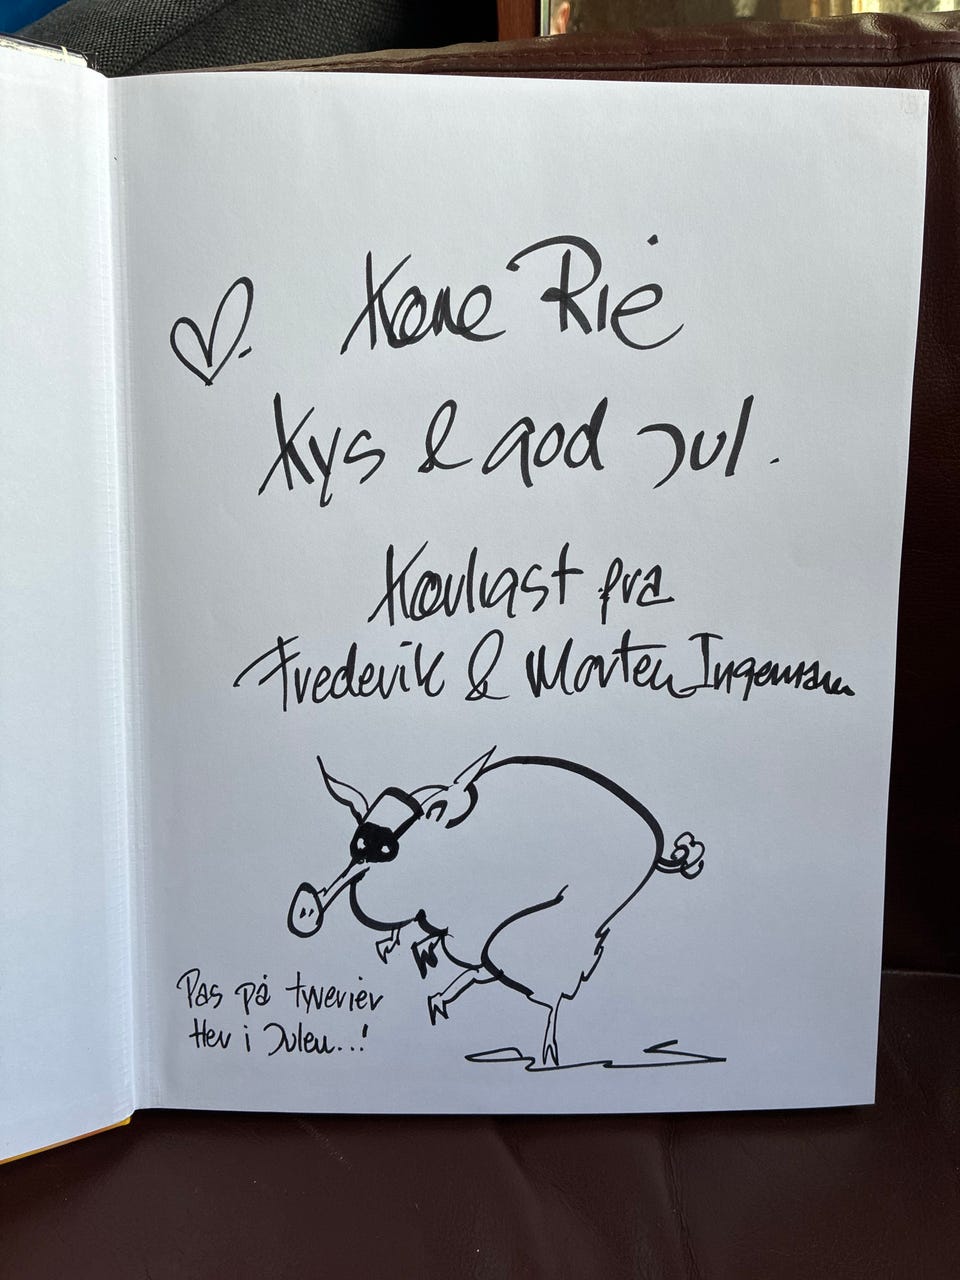 Kære Rie
Kys & god Jul.
Kærligst fra
Frederik & Morten Ingemann
Pas på tyverier
Her i Julen...!